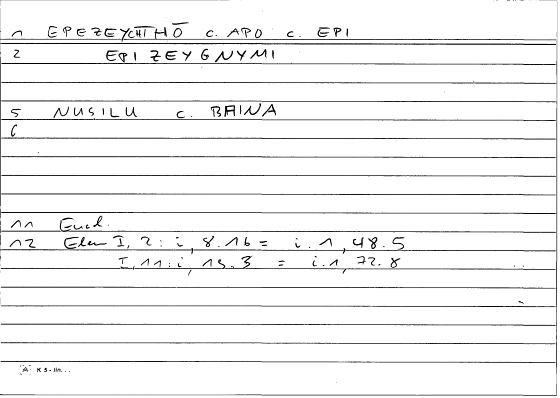 1 EPEZEYCHTHŌ c. APO c. EPI
2 EPI ZEYGNYMI
5 NUSILU c. BAINA
6
11 Eucl.
12 Elem I, 2 : i, 8.16 = i. 1, 48.5
I, 11 : i, 15. 3 = i. 1, 72. 8
A K 5 -